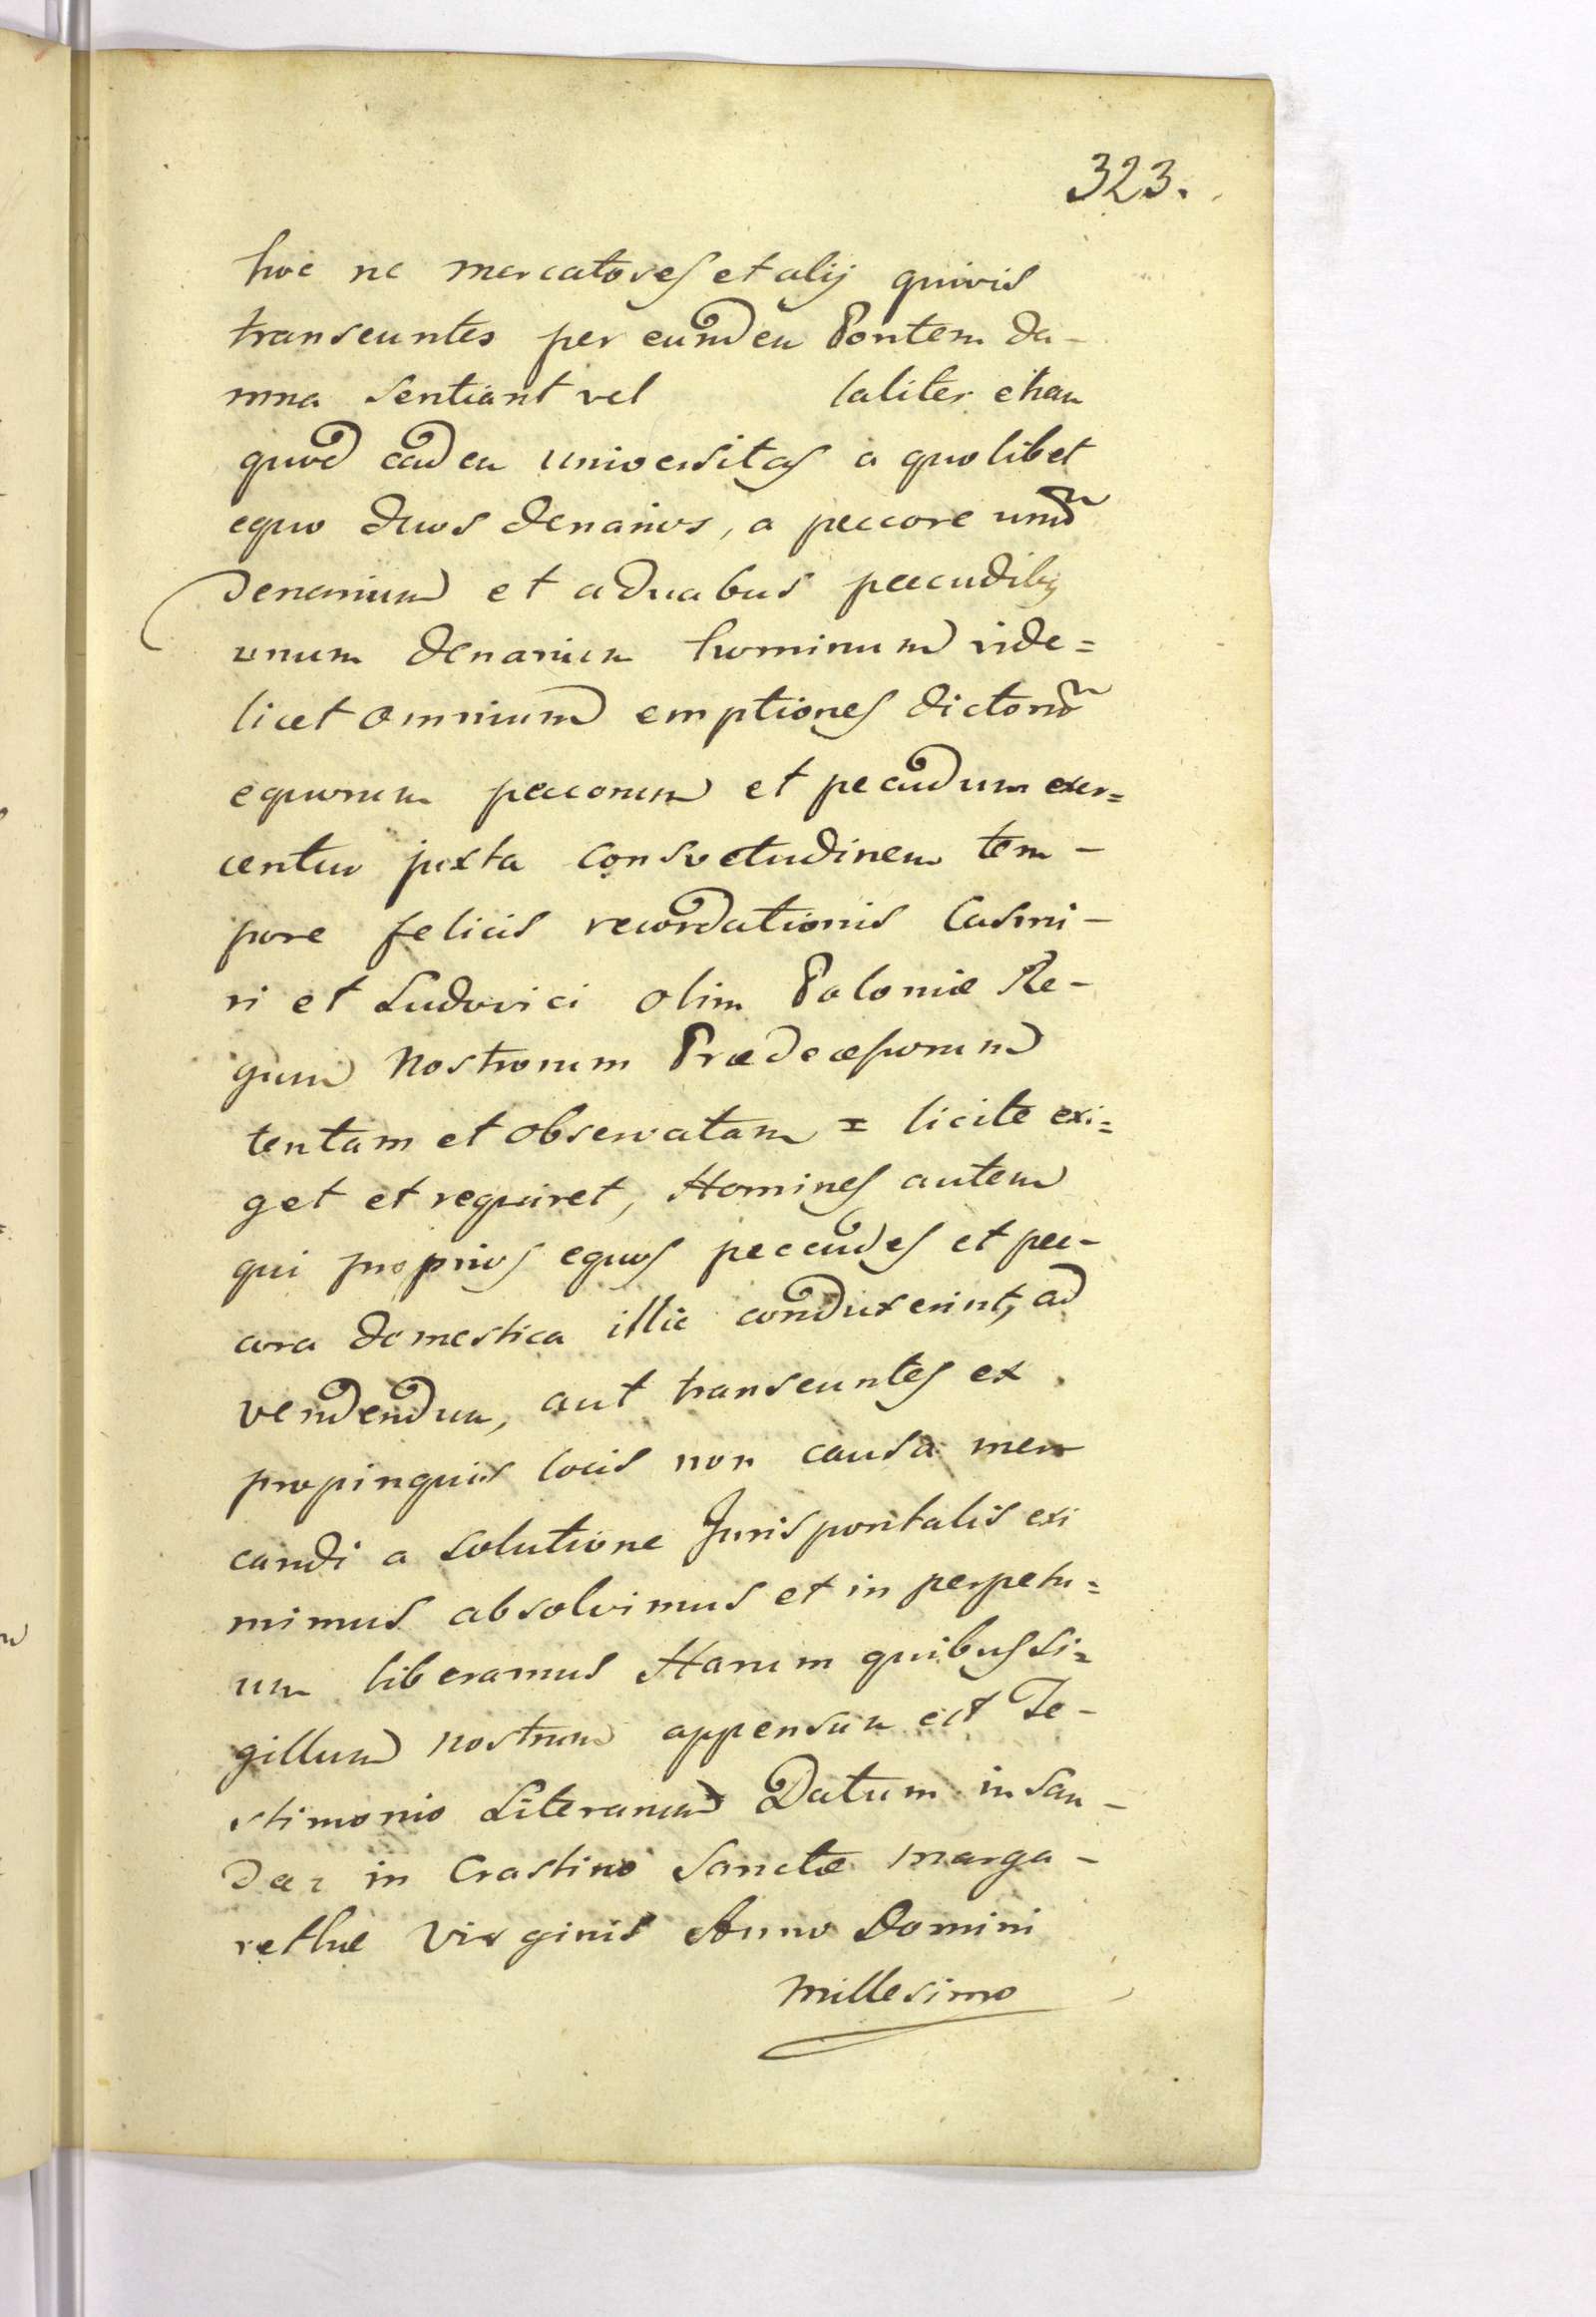 323.
hoc ne mercatores et alij quivis
transeuntes per eundem Pontem da-
mna sentiant vel taliter etiam
quod eadem universitas a quolibet
equo duos denarios, a peccore unum
denarium et a duabus peccudibus
unum denarium hominum vide=
licet omnium emptiones dictorum
equorum peccorum et pecudum exer=
centur juxta consvetudinem tem-
pore felicis recordationis Casimi-
ri et Ludovici olim Poloniæ Re-
gum Nostrorum Prædecessorum
tentam et observatam = licite exi=
get et requiret, Homines autem
qui proprios equos peccudes et pec-
cora domestica illic conduxerint, ad
vendendum, aut transeuntes ex
propinquis locis non causa mer
candi a solutione Juris pontalis exi
mimus absolvimus et in perpetu=
um liberamus Harum quibus Si=
gillum nostrum appensum est Te-
stimonio Literarum Datum in San-
dec in Crastino Sanctæ Marga-
rethæ Virginis Anno Domini
Millesimo